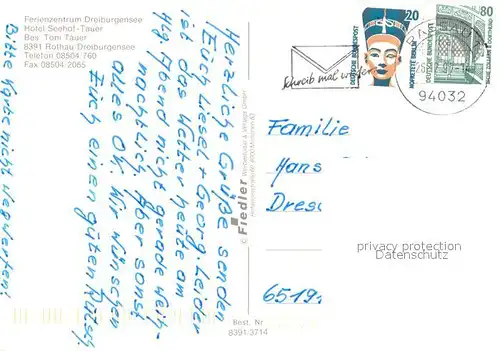 Ferienzentrum Dreiburgensee
Hotel Seehof - Tauer
Bes. Tom Tauer
8391 Rothau Dreiburgensee
Telefon 08504 760
Fax 08504 2065
Herzliche Grüße senden
Euch Liesel + Georg. Leider
ist das Wetter heute am
Hlg. Abend nicht gerade weih-
nachtlich, aber sonst
alles ok. Wir wünschen
Euch einen guten Rutsch.
Bitte Karte nicht wegwerfen!
© Fiedler
Best. Nr.
8391 3714
Schreib mal wieder
20
DEUTSCHE BUNDESPOST
NOFRETETE BERLIN
80
DEUTSCHE BUNDESPOST
94032
Familie
Hans
Dres
6519
privacy protection
DatenSchutz